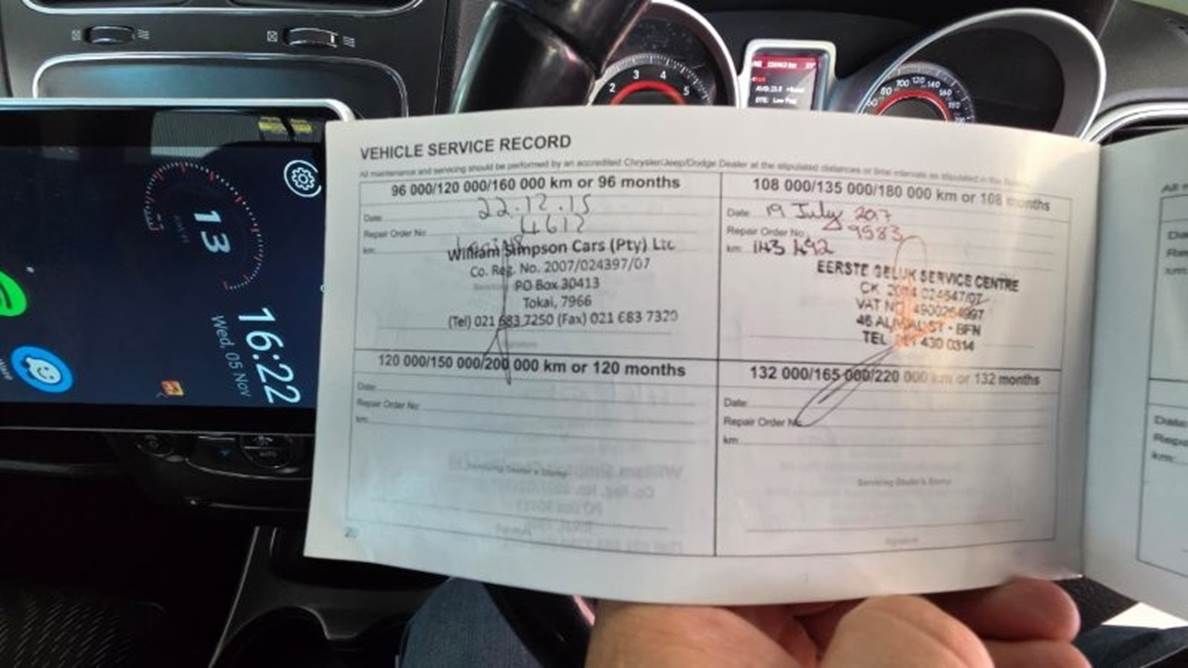 VEHICLE SERVICE RECORD
All maintenance and servicing should be performed by an accredited Chrysler/Jeep/Dodge Dealer at the stipulated distances or time intervals as stipulated in the
96 000/120 000/160 000 km or 96 months
Date: 22.12.15
Repair Order No: 4612
km:
William Simpson Cars (Pty) Ltc
Co. Reg. No. 2007/024397/07
PO Box 30413
Tokai, 7966
(Tel) 021 683 7250 (Fax) 021 683 7320
108 000/135 000/180 000 km or 108 months
Date: 19 July 2017
Repair Order No: 9583
km: 143 492
EERSTE GELUK SERVICE CENTRE
CK
VAT
46 - BFN
TEL 430 0314
120 000/150 000/200 000 km or 120 months
Date:
Repair Order No:
km:
Servicing Dealer's Stamp
132 000/165 000/220 000 km or 132 months
Date:
Repair Order No
km
Servicing Dealer's Stamp
Signature
13
16:22
Wed, 05 Nov
2 3 4 5
60 80 100 120 140 160